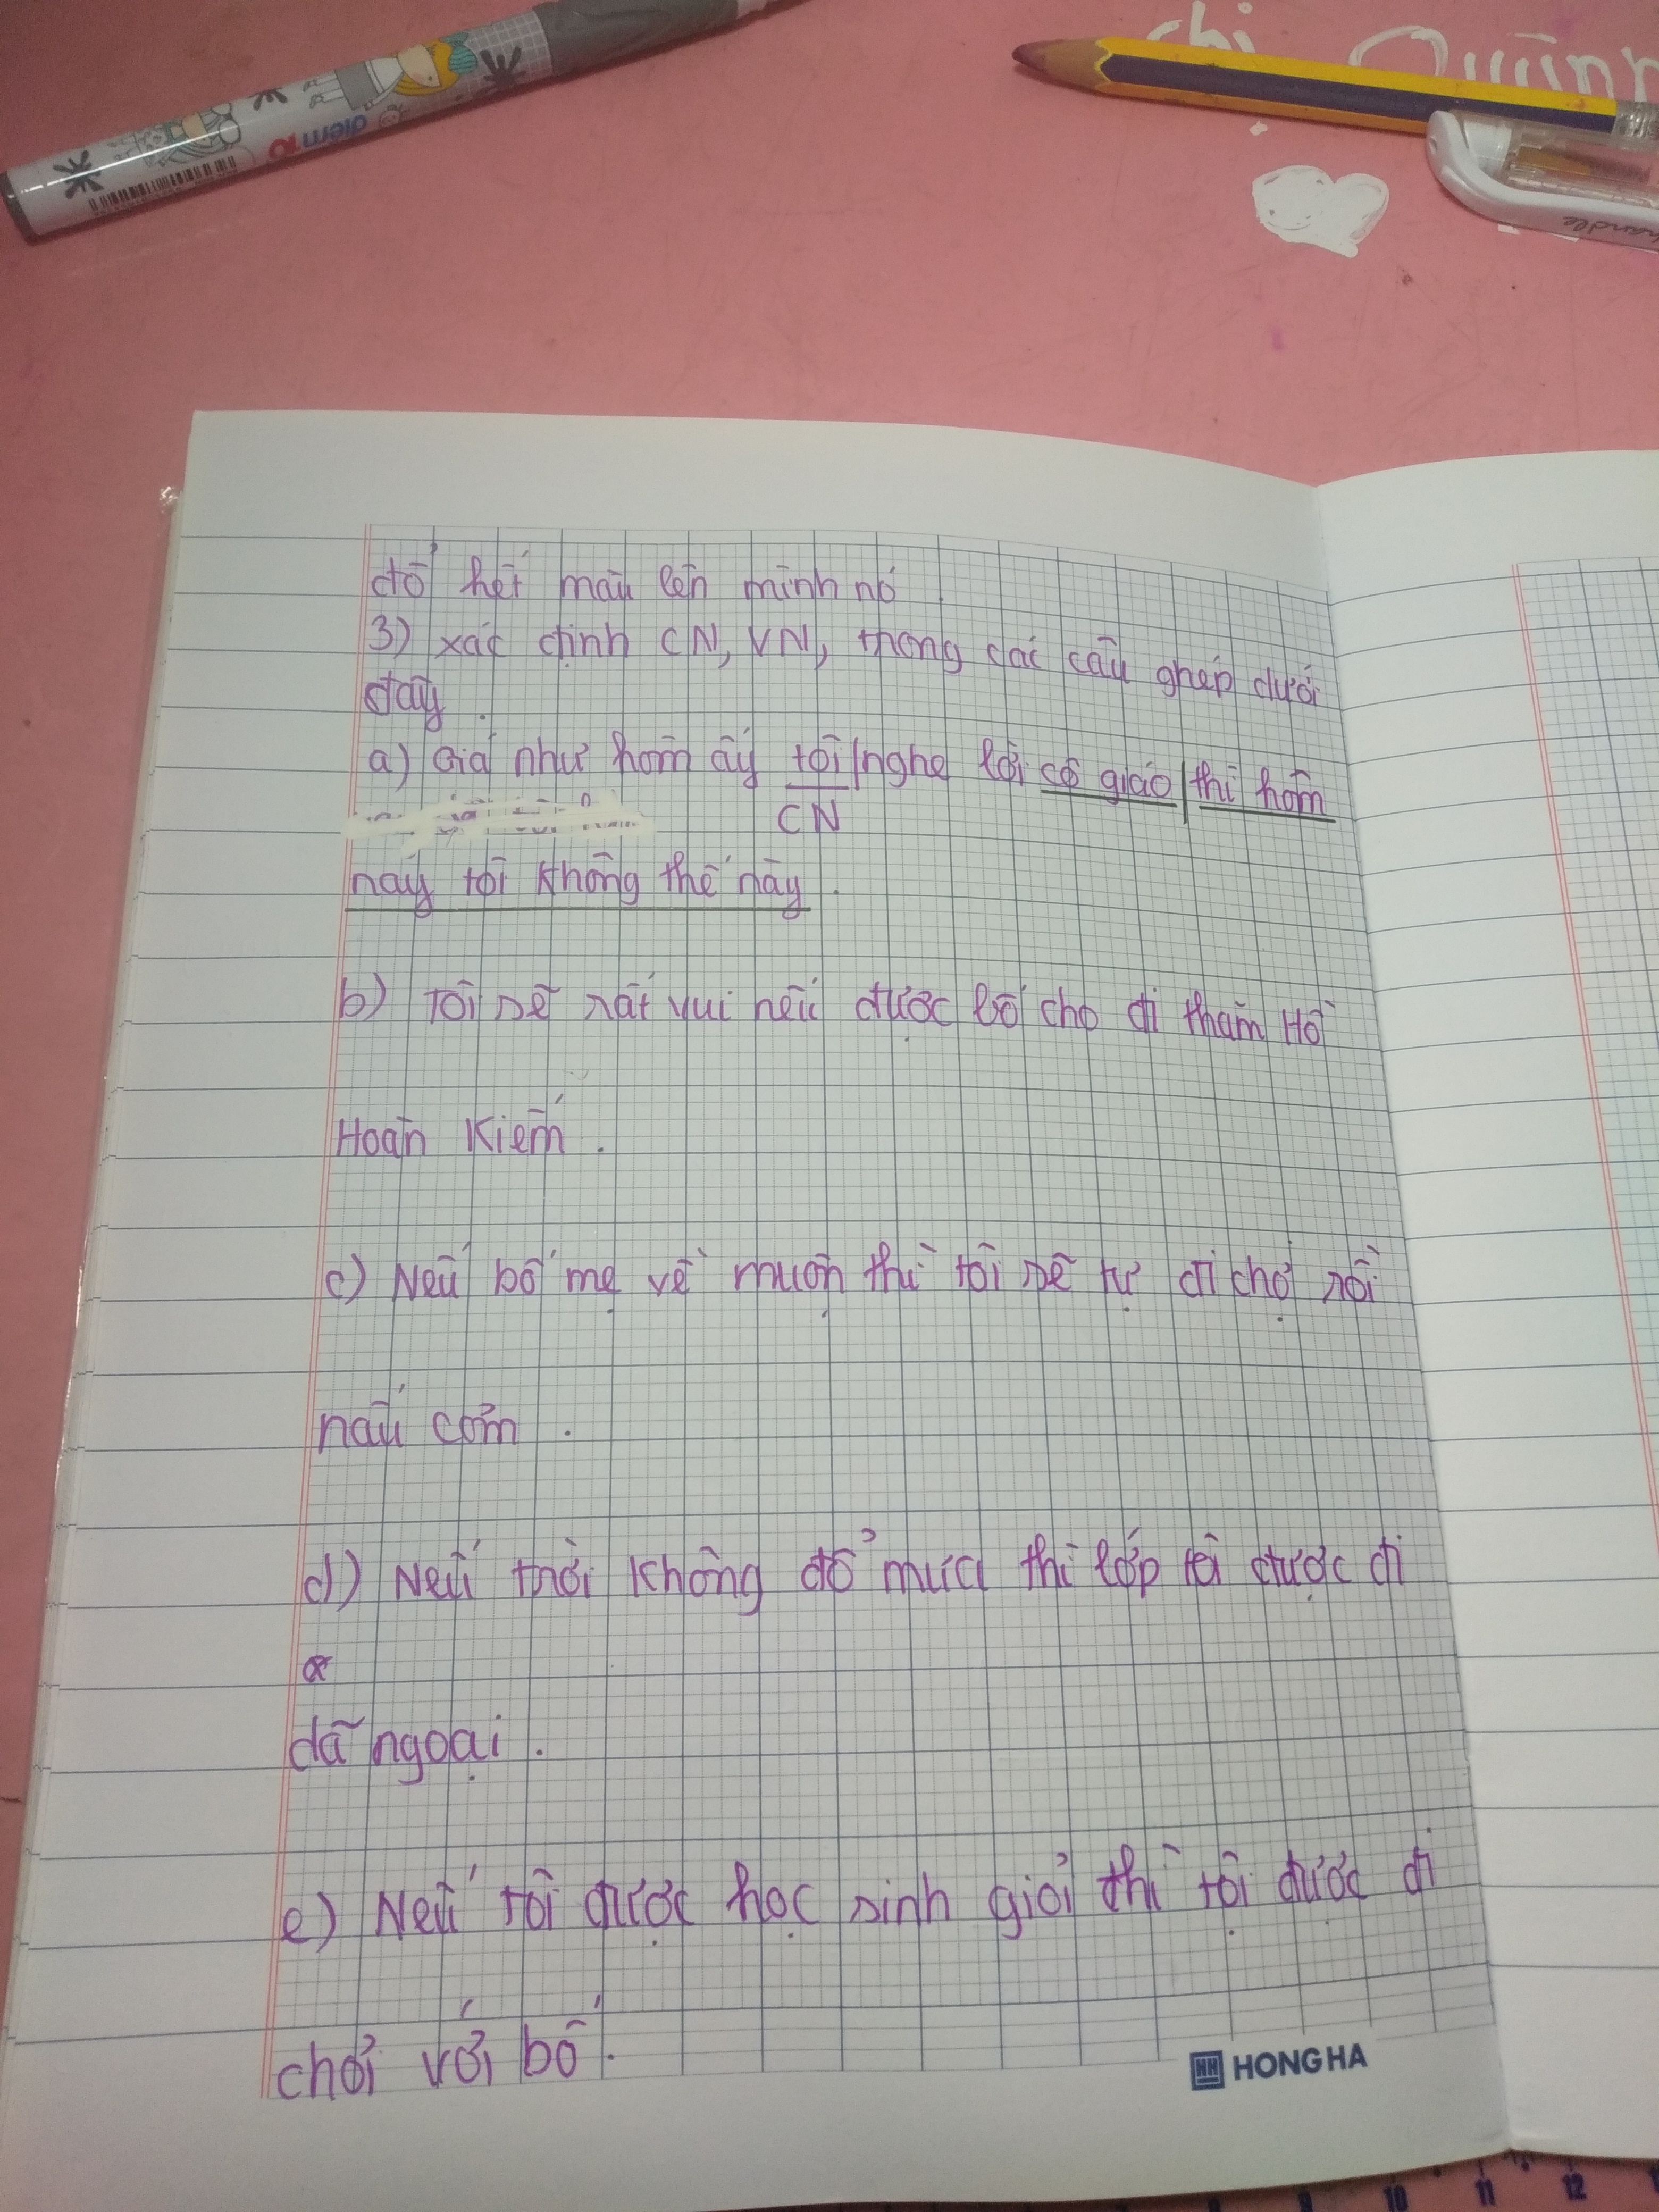 điểm 10
chi Quỳnh
handle
đổ hết mãu lên mình nó
3) xác định CN, VN, trong các câu ghép dưới
đây.
a) Giá như hôm ấy tôi/nghe lời cô giáo/thì hôm
CN
nay tôi không thế này.
b) Tôi sẽ rất vui nếu được bố cho đi thăm Hồ
Hoàn Kiếm.
c) Nếu bố mẹ về muộn thì tôi sẽ tự đi chợ rồi
nấu cơm.
d) Nếu trời không đổ mưa thì lớp tôi được đi
dã ngoại.
e) Nếu tôi được học sinh giỏi thì tôi được đi
chơi với bố.
HONG HA
10 11 12